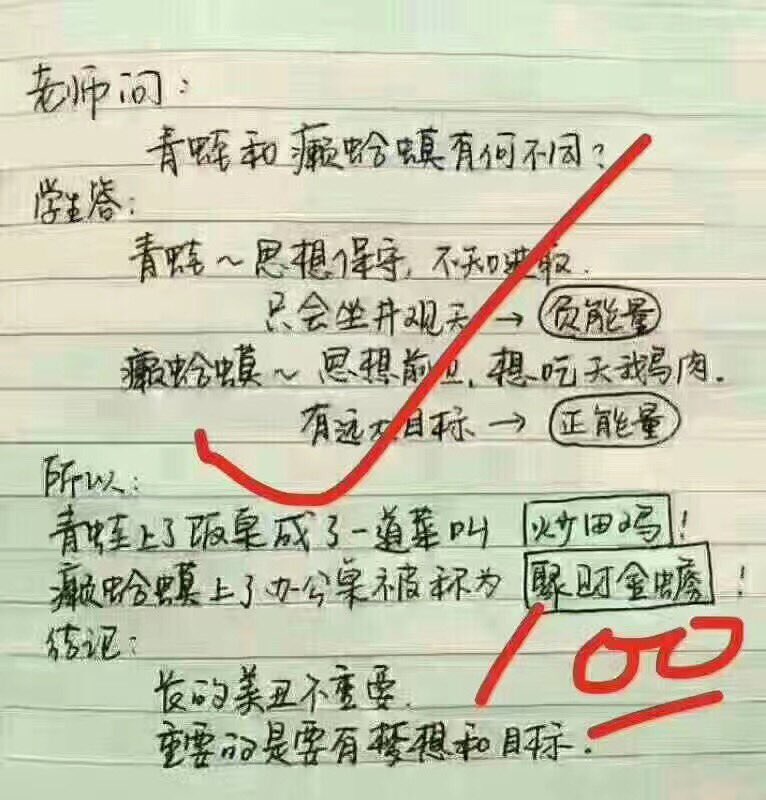 老师问：
青蛙和癞蛤蟆有何不同？
学生答：
青蛙～思想保守，不知进取．
只会坐井观天→负能量
癞蛤蟆～思想前卫，想吃天鹅肉．
有远大目标→正能量
所以：
青蛙上了饭桌成了一道菜叫 炒田鸡！
癞蛤蟆上了办公桌被称为 聚财金蟾！
结论：
长的美丑不重要．
重要的是要有梦想和目标．
100